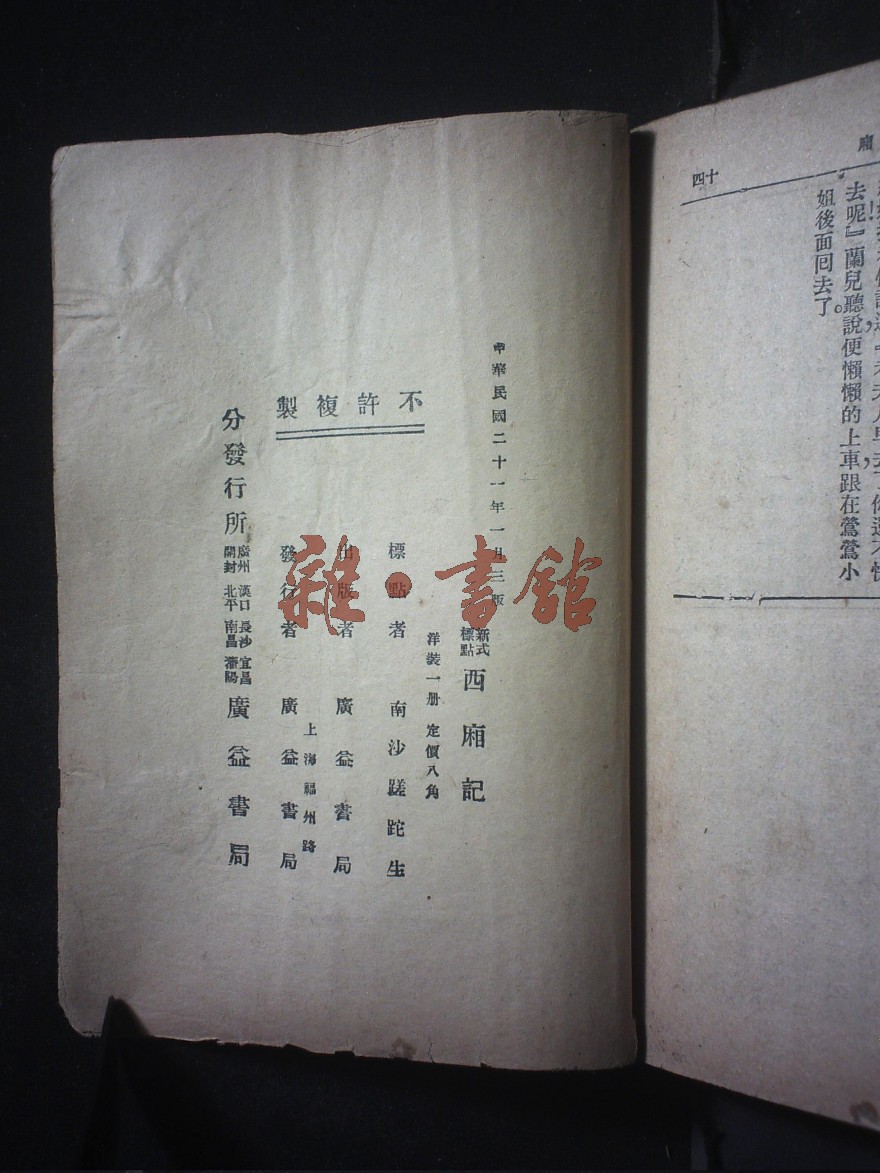 十四
廂
去呢』蘭兒聽說便懶懶的上車跟在鶯鶯小
姐後面回去了。
中華民國二十一年一月三版
新式標點 西廂記
洋裝一册 定價八角
不許複製
標點者 南沙蹉跎生
出版者 廣益書局
上海福州路
發行者 廣益書局
分發行所 廣州 漢口 長沙 宜昌 開封 北平 南昌 瀋陽 廣益書局
雜·書館